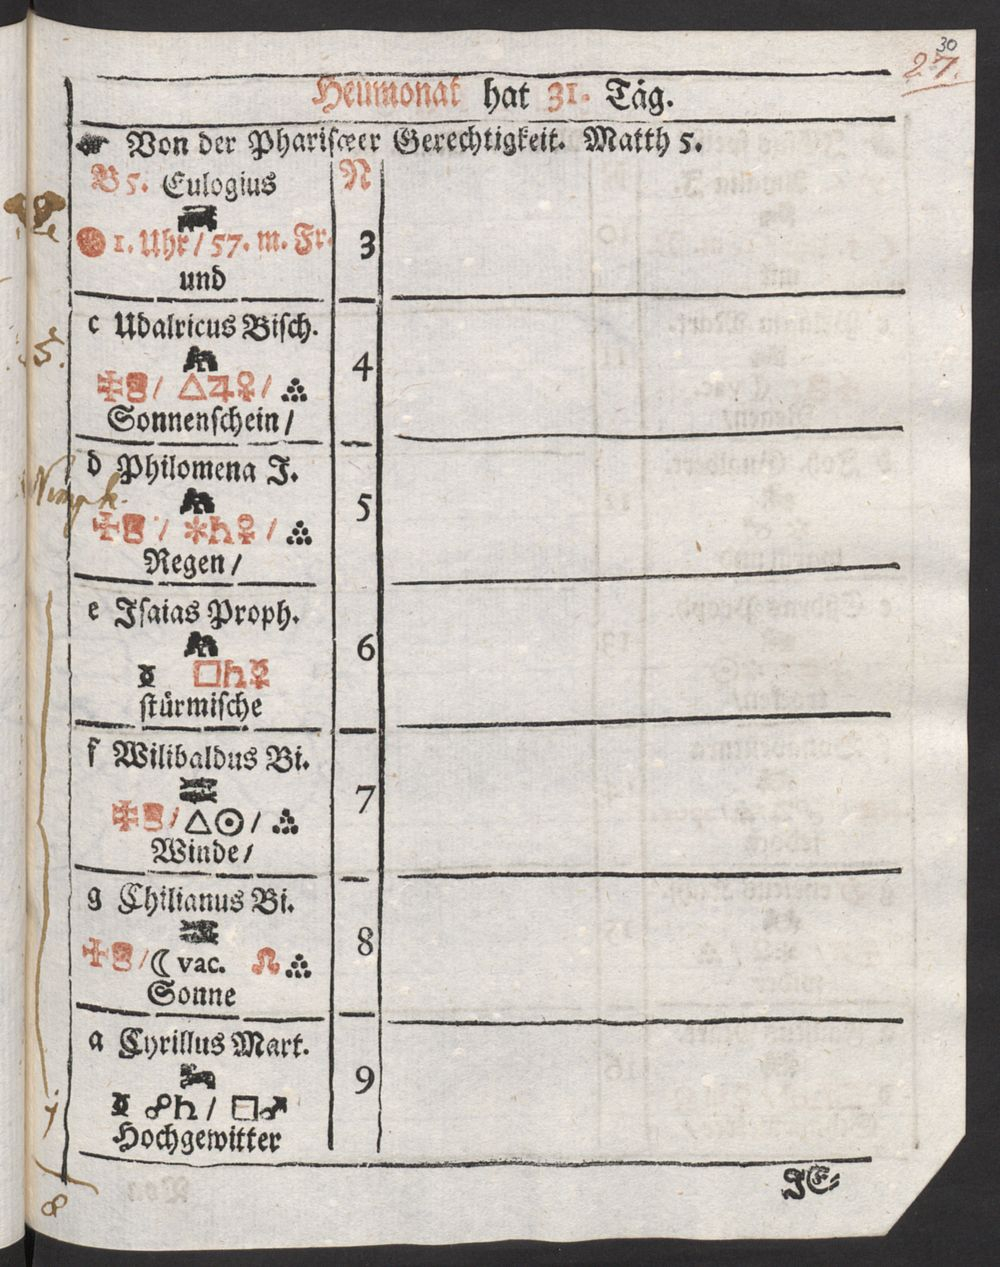 30
27.
Heumonat hat 31. Täg.
Von der Phariſæer Gerechtigkeit. Matth 5.
B 5. Eulogius N
1. Uhr / 57. m. Fr. 3
und
c Udalricus Biſch.
△♃♀ / 4
Sonnenſchein /
5.
d Philomena J.
/ ✱♄♀ / 5
Regen /
e Iſaias Proph.
□♄☿ 6
ſtürmiſche
f Wilibaldus Bi.
/ △☉ / 7
Winde /
g Chilianus Bi.
/ ☾ vac. ☊ 8
Sonne
a Cyrillus Mart.
☍♄ / □♂ 9
Hochgewitter
JE-
8